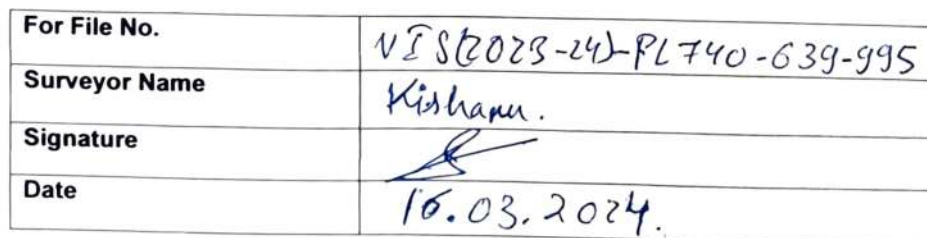 For File No. VIS(2023-24)-PL740-639-995
Surveyor Name Kishanu.
Signature
Date 16.03.2024.